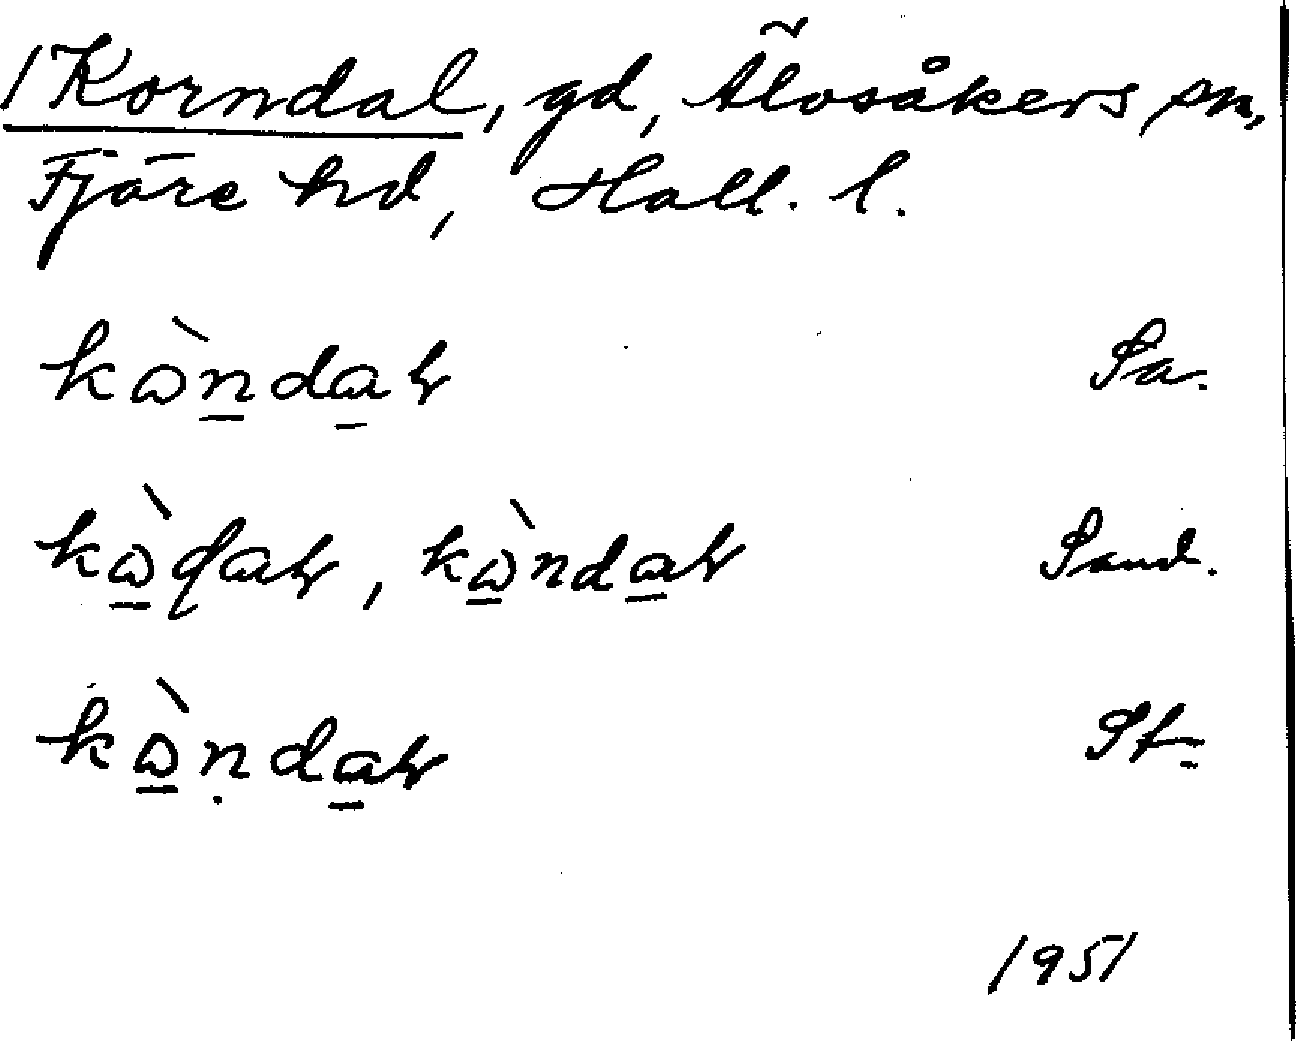 1 Korndal, gd, Älvsåkers sn,
Fjäre hd, Hall. l.
kɷ̀n̲da̲ɫ Sa.
kɷ̲̀ɖaɫ, kɷ̲̀nda̲ɫ Sand.
kɷ̲̀ṇda̲ɫ St.
1951